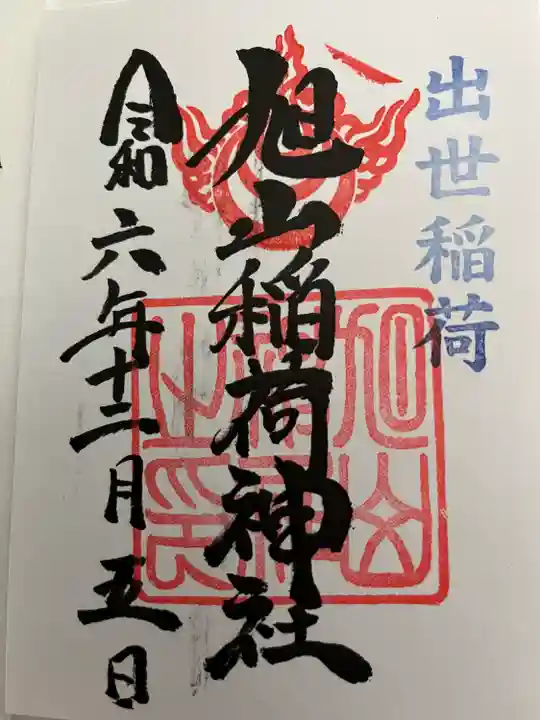 出世稲荷
旭山稲荷神社
令和六年十二月五日